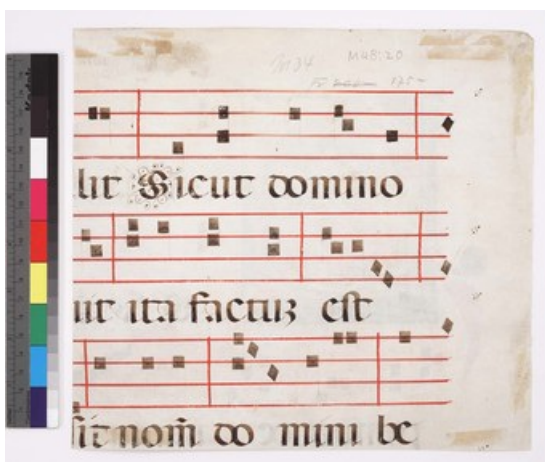 M48:20
lit Sicut domino
uit ita factuz est
sit nom̄ do mini be